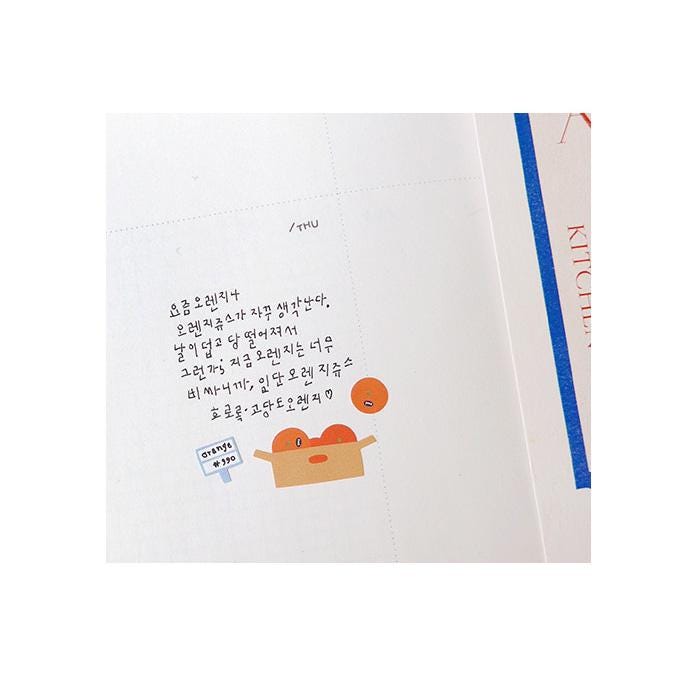 /THU
요즘 오렌지나
오렌지쥬스가 자꾸 생각난다.
날이 덥고 당 떨어져서
그런가; 지금 오렌지는 너무
비싸니까, 일단 오렌지쥬스
호로록·고당도오렌지♡
orange
#990
KITCHEN